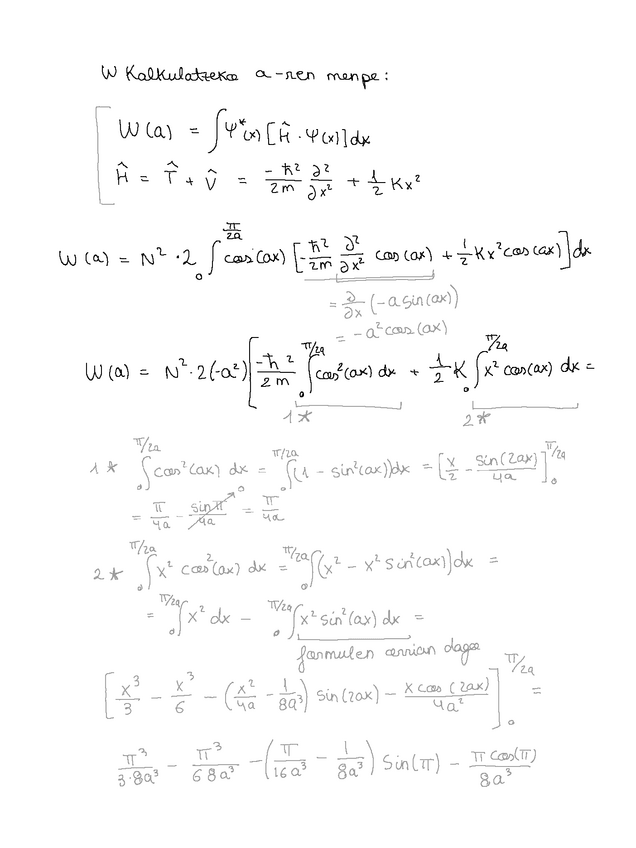 W Kalkulatzeko a-ren menpe:
W(a) = ∫ψ*(x) [Ĥ · ψ(x)] dx
Ĥ = T̂ + V̂ = -ħ²/2m ∂²/∂x² + 1/2 Kx²
W(a) = N² · 2 ∫₀^(π/2a) cos(ax) [-ħ²/2m ∂²/∂x² cos(ax) + 1/2 Kx² cos(ax)] dx
= ∂/∂x (-a sin(ax))
= -a² cos(ax)
W(a) = N² · 2(-a²) [-ħ²/2m ∫₀^(π/2a) cos²(ax) dx + 1/2 K ∫₀^(π/2a) x² cos(ax) dx =
1* 2*
1* ∫₀^(π/2a) cos²(ax) dx = ∫₀^(π/2a) (1 - sin²(ax)) dx = [x/2 - sin(2ax)/4a]₀^(π/2a)
= π/4a - sin π/4a → 0 = π/4a
2* ∫₀^(π/2a) x² cos²(ax) dx = ∫₀^(π/2a) (x² - x² sin²(ax)) dx =
= ∫₀^(π/2a) x² dx - ∫₀^(π/2a) x² sin²(ax) dx =
formulen orrian dago
[x³/3 - x³/6 - (x²/4a - 1/8a³) sin(2ax) - x cos(2ax)/4a²]₀^(π/2a) =
π³/3·8a³ - π³/6 8a³ - (π/16a³ - 1/8a³) Sin(π) - π cos(π)/8a³